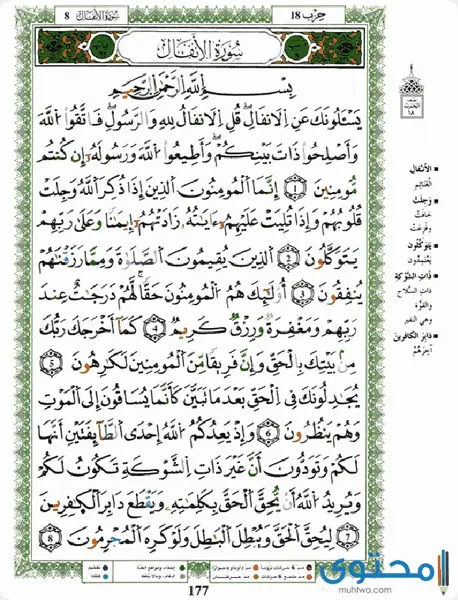 سُورَةُ الأَنفَال 8
حِزْب 18
سُورَةُ الأَنفَالِ
بِسْمِ اللَّهِ الرَّحْمَٰنِ الرَّحِيمِ
يَسْـَٔلُونَكَ عَنِ الْأَنفَالِ ۖ قُلِ الْأَنفَالُ لِلَّهِ وَالرَّسُولِ ۖ فَاتَّقُوا اللَّهَ
وَأَصْلِحُوا ذَاتَ بَيْنِكُمْ ۖ وَأَطِيعُوا اللَّهَ وَرَسُولَهُ إِن كُنتُم
مُّؤْمِنِينَ (1) إِنَّمَا الْمُؤْمِنُونَ الَّذِينَ إِذَا ذُكِرَ اللَّهُ وَجِلَتْ
قُلُوبُهُمْ وَإِذَا تُلِيَتْ عَلَيْهِمْ ءَايَٰتُهُ زَادَتْهُمْ إِيمَٰنًا وَعَلَىٰ رَبِّهِمْ
يَتَوَكَّلُونَ (2) الَّذِينَ يُقِيمُونَ الصَّلَوٰةَ وَمِمَّا رَزَقْنَٰهُمْ
يُنفِقُونَ (3) أُو۟لَٰٓئِكَ هُمُ الْمُؤْمِنُونَ حَقًّا ۚ لَّهُمْ دَرَجَٰتٌ عِندَ
رَبِّهِمْ وَمَغْفِرَةٌ وَرِزْقٌ كَرِيمٌ (4) كَمَا أَخْرَجَكَ رَبُّكَ
مِنۢ بَيْتِكَ بِالْحَقِّ وَإِنَّ فَرِيقًا مِّنَ الْمُؤْمِنِينَ لَكَٰرِهُونَ (5)
يُجَٰدِلُونَكَ فِي الْحَقِّ بَعْدَ مَا تَبَيَّنَ كَأَنَّمَا يُسَاقُونَ إِلَى الْمَوْتِ
وَهُمْ يَنظُرُونَ (6) وَإِذْ يَعِدُكُمُ اللَّهُ إِحْدَى الطَّآئِفَتَيْنِ أَنَّهَا
لَكُمْ وَتَوَدُّونَ أَنَّ غَيْرَ ذَاتِ الشَّوْكَةِ تَكُونُ لَكُمْ
وَيُرِيدُ اللَّهُ أَن يُحِقَّ الْحَقَّ بِكَلِمَٰتِهِ وَيَقْطَعَ دَابِرَ الْكَٰفِرِينَ
(7) لِيُحِقَّ الْحَقَّ وَيُبْطِلَ الْبَٰطِلَ وَلَوْ كَرِهَ الْمُجْرِمُونَ (8)
الحِزْب
١٨
الأَنْفَالِ
الغَنَائِمِ
وَجِلَتْ
خَافَتْ
وَفَزِعَتْ
يَتَوَكَّلُونَ
يَعْتَمِدُونَ
ذَاتِ الشَّوْكَةِ
ذَاتِ السِّلَاحِ
وَالقُوَّةِ
وَهِيَ النَّفِير
دَابِرَ الْكَافِرِينَ
آخِرَهُمْ
177
محتوى
muhtwa.com